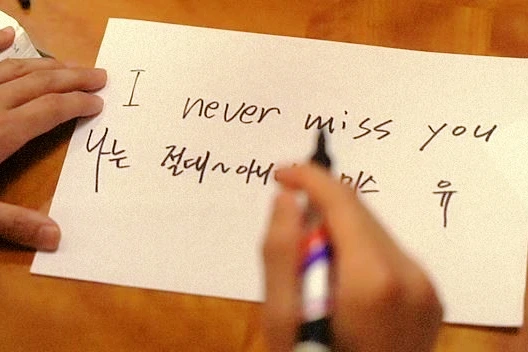 I never miss you
나는 절대~아니 미스 유